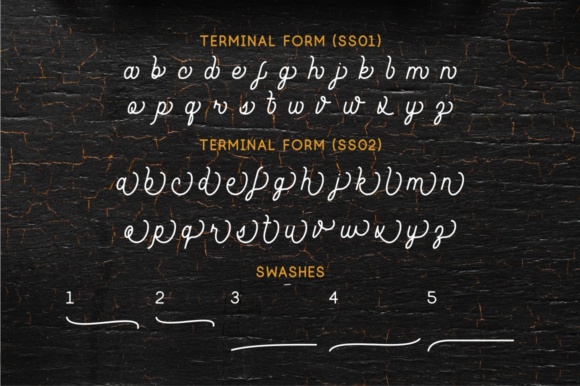 TERMINAL FORM (SS01)
a b c d e f g h j k l m n
o p q r s t u v w x y z
TERMINAL FORM (SS02)
a b c d e f g h j k l m n
o p q r s t u v w x y z
SWASHES
1 2 3 4 5